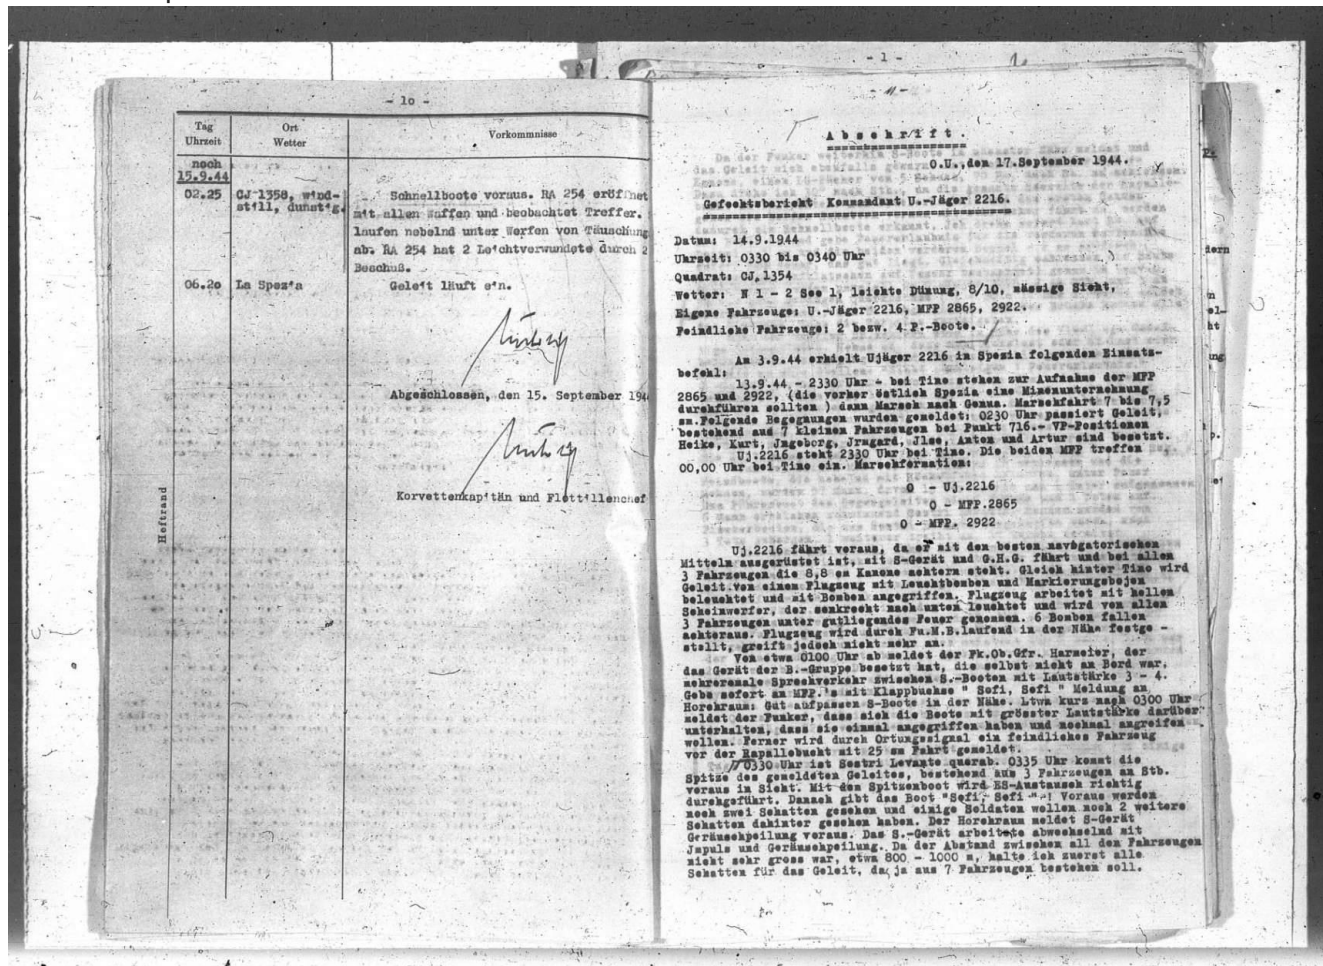 - 10 -
Tag
Uhrzeit
Ort
Wetter
Vorkommnisse
noch
15.9.44
02.25
CJ 1358, wind-
still, dunstig.
Schnellboote voraus. RA 254 eröffnet
mit allen Waffen und beobachtet Treffer.
laufen nebelnd unter Werfen von Täuschung
ab. RA 254 hat 2 Leichtverwundete durch 2
Beschuß.
06.20
La Spezia
Geleit läuft ein.
Abgeschlossen, den 15. September 194
Korvettenkapitän und Flottillenchef
Heftrand
- 1 -
Abschrift.
O.U., den 17.September 1944.
Gefechtsbericht Kommandant U.-Jäger 2216.
Datum: 14.9.1944
Uhrzeit: 0330 bis 0340 Uhr
Quadrat: CJ. 1354
Wetter: N 1 - 2 See 1, leichte Dünung, 8/10, mässige Sicht,
Eigene Fahrzeuge: U.-Jäger 2216, MFP 2865, 2922.
Feindliche Fahrzeuge: 2 bezw. 4 P.-Boote.
Am 3.9.44 erhielt Ujäger 2216 in Spezia folgenden Einsatz-
befehl:
13.9.44 - 2330 Uhr - bei Tino stehen zur Aufnahme der MFP
2865 und 2922, (die vorher östlich Spezia eine Minenunternehmung
durchführen sollten ) dann Marsch nach Genua. Marschfahrt 7 bis 7,5
sm.Folgende Begegnungen wurden gemeldet: 0230 Uhr passiert Geleit,
bestehend aus 7 kleinen Fahrzeugen bei Punkt 716.- VP-Positionen
Heike, Kurt, Jngeborg, Jrmgard, Jlse, Anton und Artur sind besetzt.
Uj.2216 steht 2330 Uhr bei Tino. Die beiden MFP treffen
00,00 Uhr bei Tino ein. Marschformation:
O - Uj.2216
O - MFP.2865
O - MFP. 2922
Uj.2216 fährt voraus, da er mit den besten navigatorischen
Mitteln ausgerüstet ist, mit S-Gerät und G.H.G. fährt und bei allen
3 Fahrzeugen die 8,8 cm Kanone achtern steht. Gleich hinter Tino wird
Geleit von einem Flugzeug mit Leuchtbomben und Markierungsbojen
beleuchtet und mit Bomben angegriffen. Flugzeug arbeitet mit hellem
Scheinwerfer, der senkrecht nach unten leuchtet und wird von allen
3 Fahrzeugen unter gutliegendes Feuer genommen. 6 Bomben fallen
achteraus. Flugzeug wird durch Fu.M.B.laufend in der Nähe festge -
stellt, greift jedoch nicht mehr an.
Von etwa 0100 Uhr ab meldet der Fk.Ob.Gfr. Harmeier, der
das Gerät der B.-Gruppe besetzt hat, die selbst nicht an Bord war,
mehreremale Sprechverkehr zwischen S.-Booten mit Lautstärke 3 - 4.
Gebe sofort an MFP.'s mit Klappbuchse " Sofi, Sofi " Meldung an
Horchraum: Gut aufpassen S-Boote in der Nähe. Etwa kurz nach 0300 Uhr
meldet der Funker, dass sich die Boote mit grösster Lautstärke darüber
unterhalten, dass sie einmal angegriffen haben und nochmal angreifen
wollen. Ferner wird durch Ortungssignal ein feindliches Fahrzeug
vor der Rapallobucht mit 25 sm Fahrt gemeldet.
0330 Uhr ist Sestri Levante querab. 0335 Uhr kommt die
Spitze des gemeldeten Geleites, bestehend aus 3 Fahrzeugen an Stb.
voraus in Sicht. Mit dem Spitzenboot wird ES-Austausch richtig
durchgeführt. Danach gibt das Boot "Sofi, Sofi "-! Voraus werden
noch zwei Schatten gesehen und einige Soldaten wollen noch 2 weitere
Schatten dahinter gesehen haben. Der Horchraum meldet S-Gerät
Geräuschpeilung voraus. Das S.-Gerät arbeitete abwechselnd mit
Jmpuls und Geräuschpeilung. Da der Abstand zwischen all den Fahrzeugen
nicht sehr gross war, etwa 800 - 1000 m, halte ich zuerst alle
Schatten für das Geleit, da ja aus 7 Fahrzeugen bestehen soll.